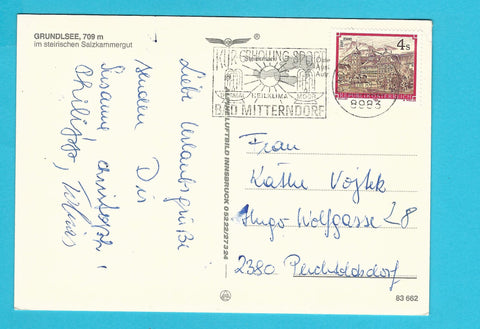 GRUNDLSEE, 709 m
im steirischen Salzkammergut
Liebe Urlaubsgrüße
senden Dir
Susanne, Christoph,
Philipp, Tobias
ALPINE LUFTBILD INNSBRUCK 0 52 22/27 3 24
KUR ERHOLUNG SPORT
Steiermark
HEILKLIMA MOOR
BAD MITTERNDORF
8983
4 S
REPUBLIK ÖSTERREICH
Frau
Käthe Vojtek
Hugo Wolfgasse 28
2380 Perchtoldsdorf
83 662